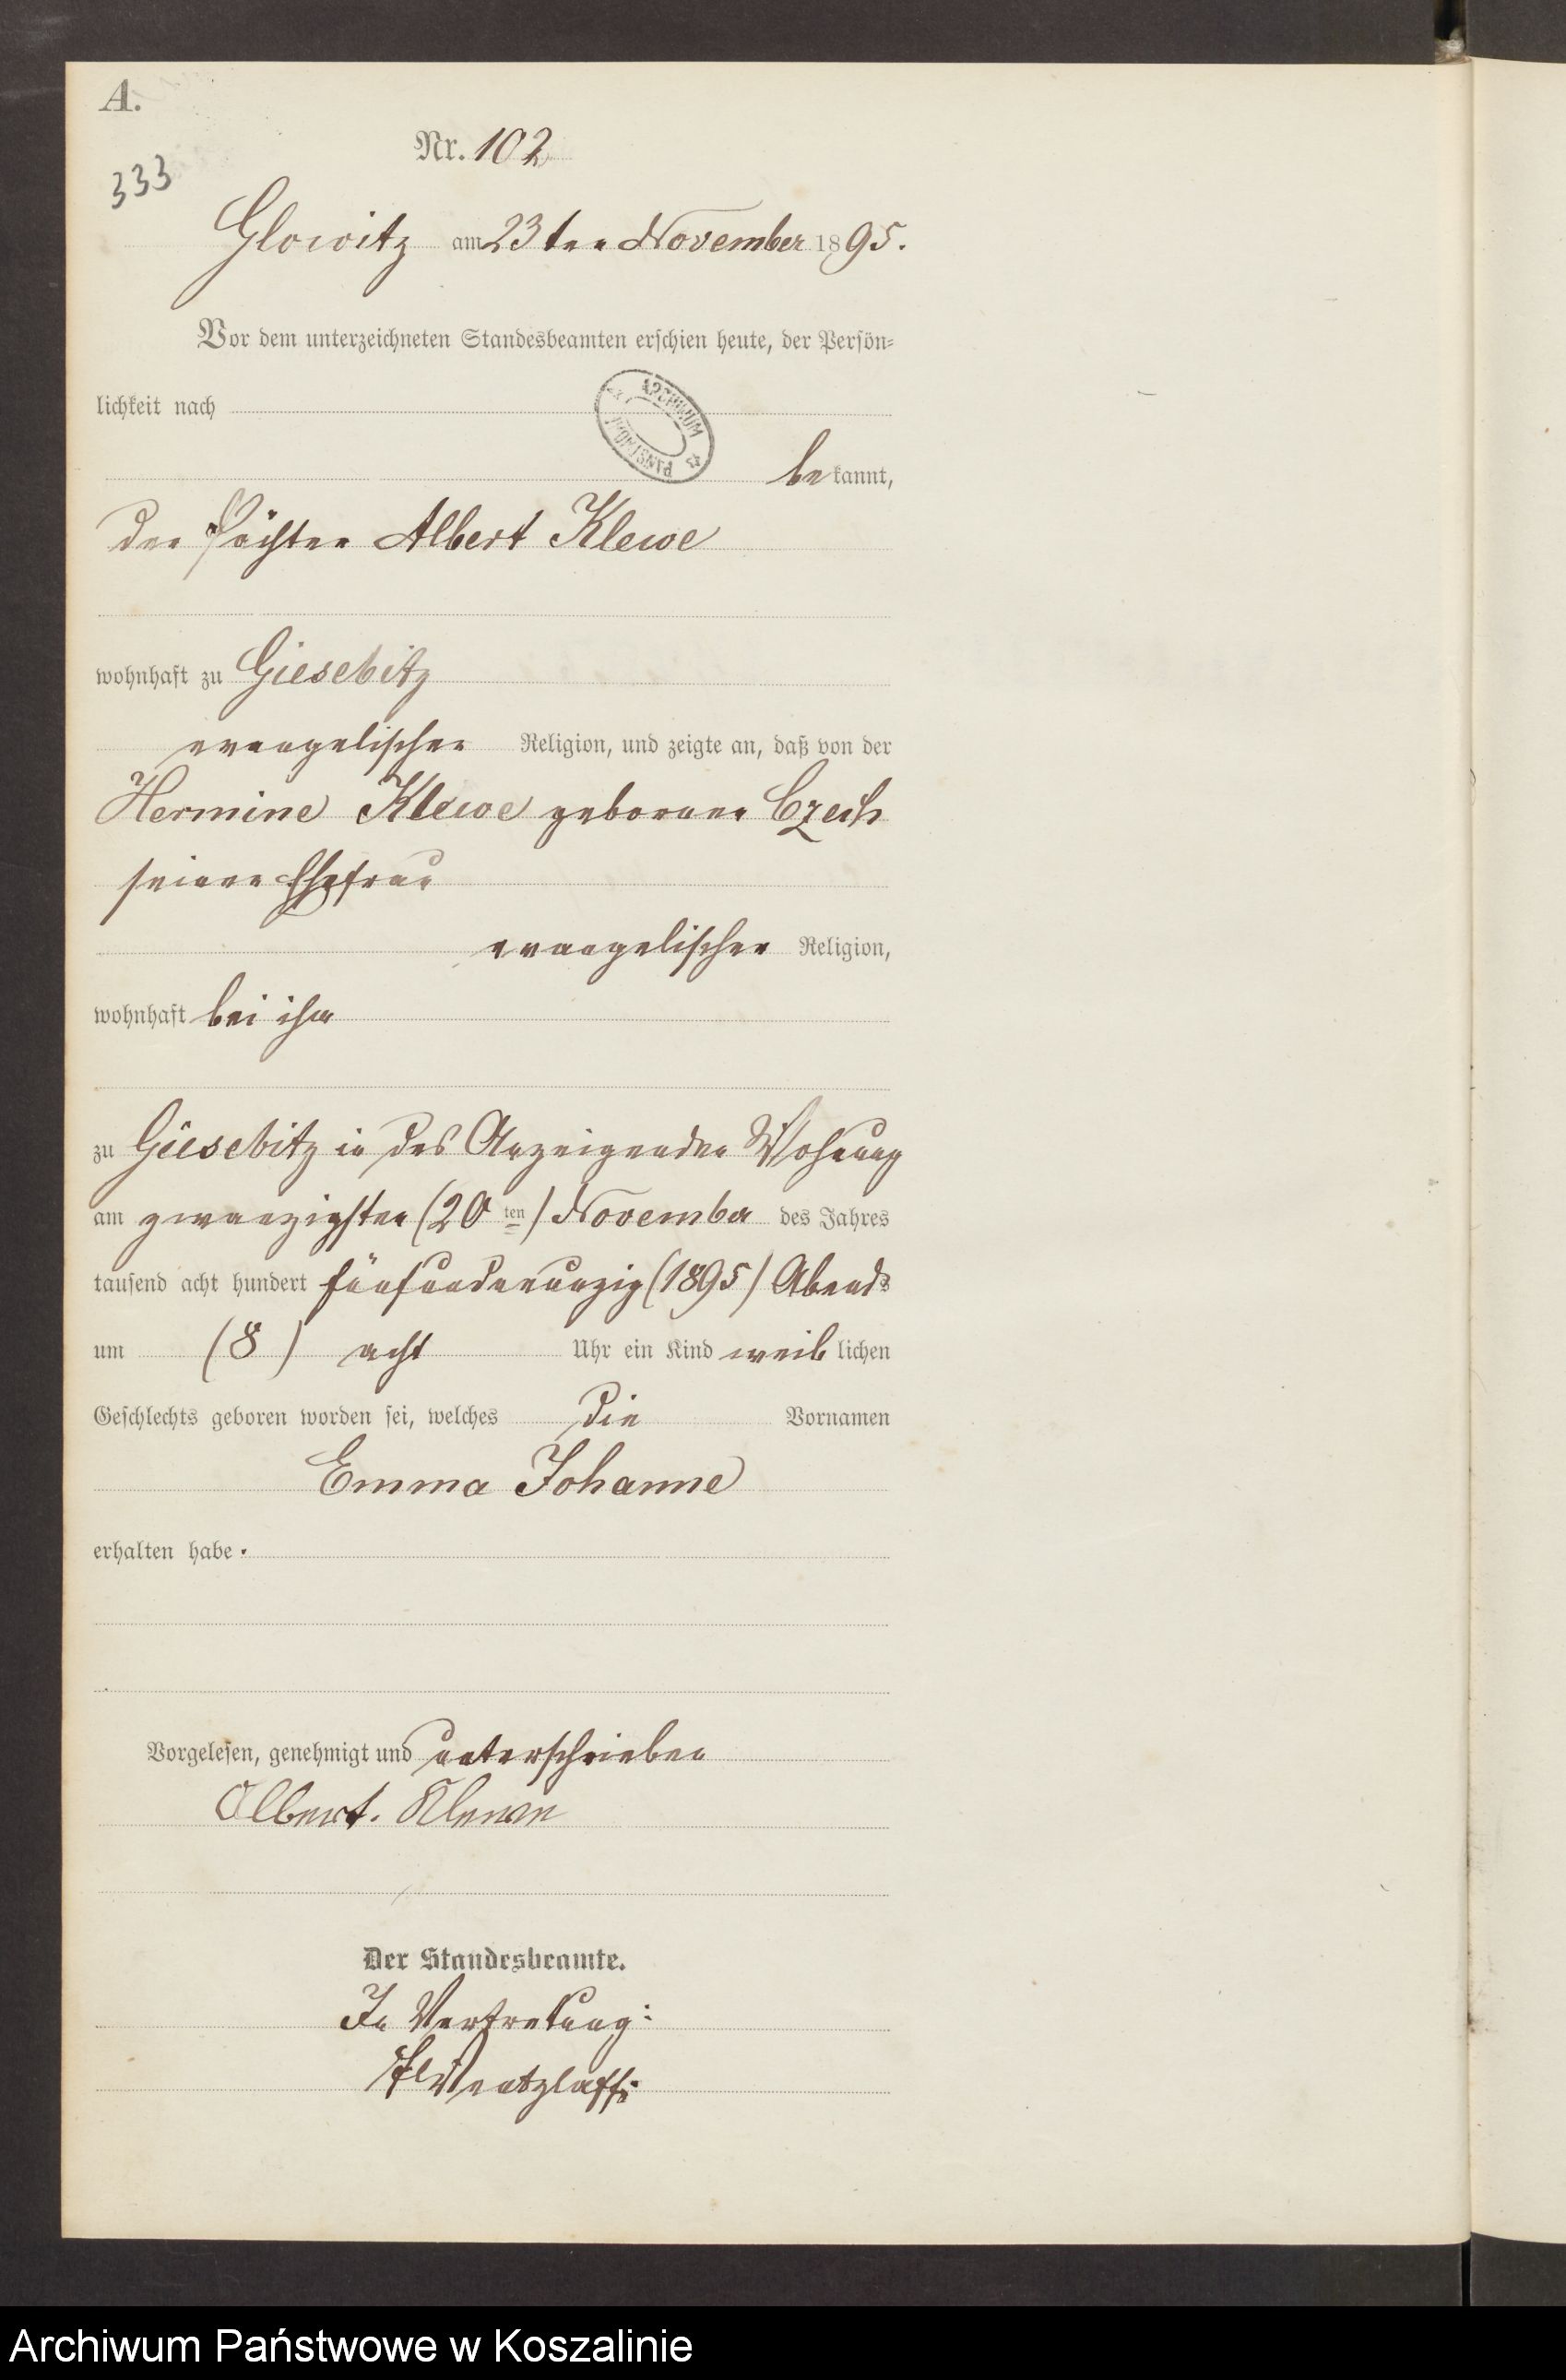 A.
Nr. 102
333
Glowitz am 23ten November 1895.
Vor dem unterzeichneten Standesbeamten erschien heute, der Persön-
lichkeit nach
ARCHIWUM PAŃSTWOWE
bekannt,
der Pächter Albert Klewe
wohnhaft zu Giesebitz
evangelischer Religion, und zeigte an, daß von der
Hermine Klewe geborenen Czech
seiner Ehefrau
evangelischer Religion,
wohnhaft bei ihm
zu Giesebitz in des Anzeigenden Wohnung
am zwanzigsten (20ten) November des Jahres
tausend acht hundert fünfundneunzig (1895) Abends
um (8) acht Uhr ein Kind weiblichen
Geschlechts geboren worden sei, welches die Vornamen
Emma Johanne
erhalten habe.
Vorgelesen, genehmigt und unterschrieben
Albert. Klewe
Der Standesbeamte.
In Vertretung:
Wentzlaff.
Archiwum Państwowe w Koszalinie